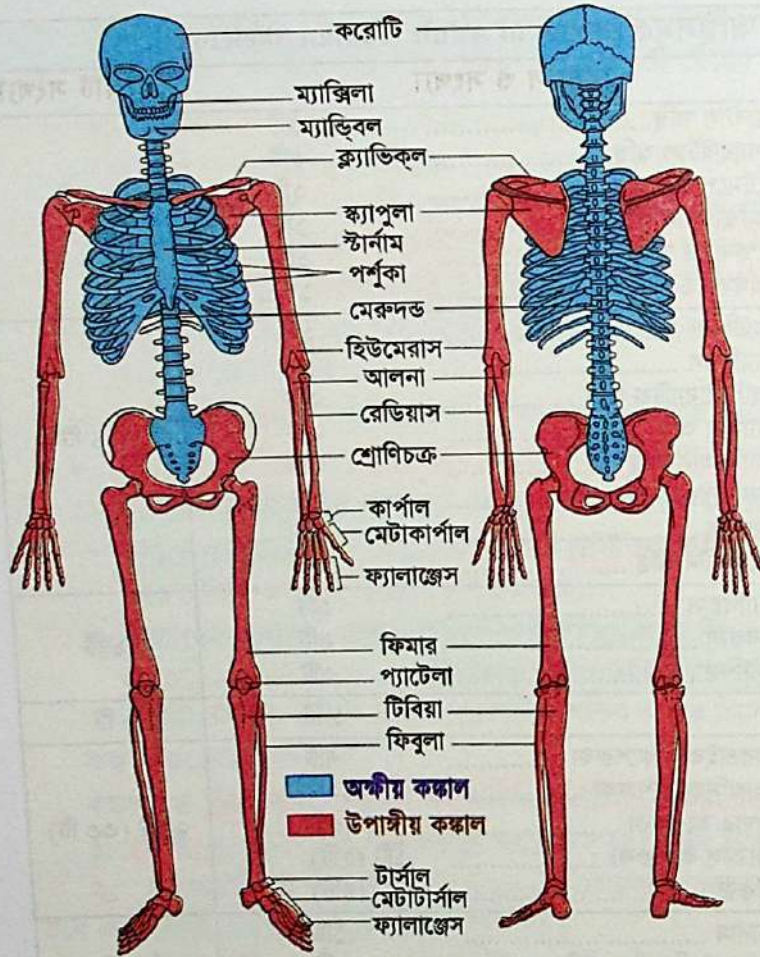 করোটি
ম্যাক্সিলা
ম্যান্ডিবল
ক্ল্যাভিক্‌ল
স্ক্যাপুলা
স্টার্নাম
পর্শুকা
মেরুদন্ড
হিউমেরাস
আলনা
রেডিয়াস
শ্রোণিচক্র
কার্পাল
মেটাকার্পাল
ফ্যালাঞ্জেস
ফিমার
প্যাটেলা
টিবিয়া
ফিবুলা
অক্ষীয় কঙ্কাল
উপাঙ্গীয় কঙ্কাল
টার্সাল
মেটাটার্সাল
ফ্যালাঞ্জেস